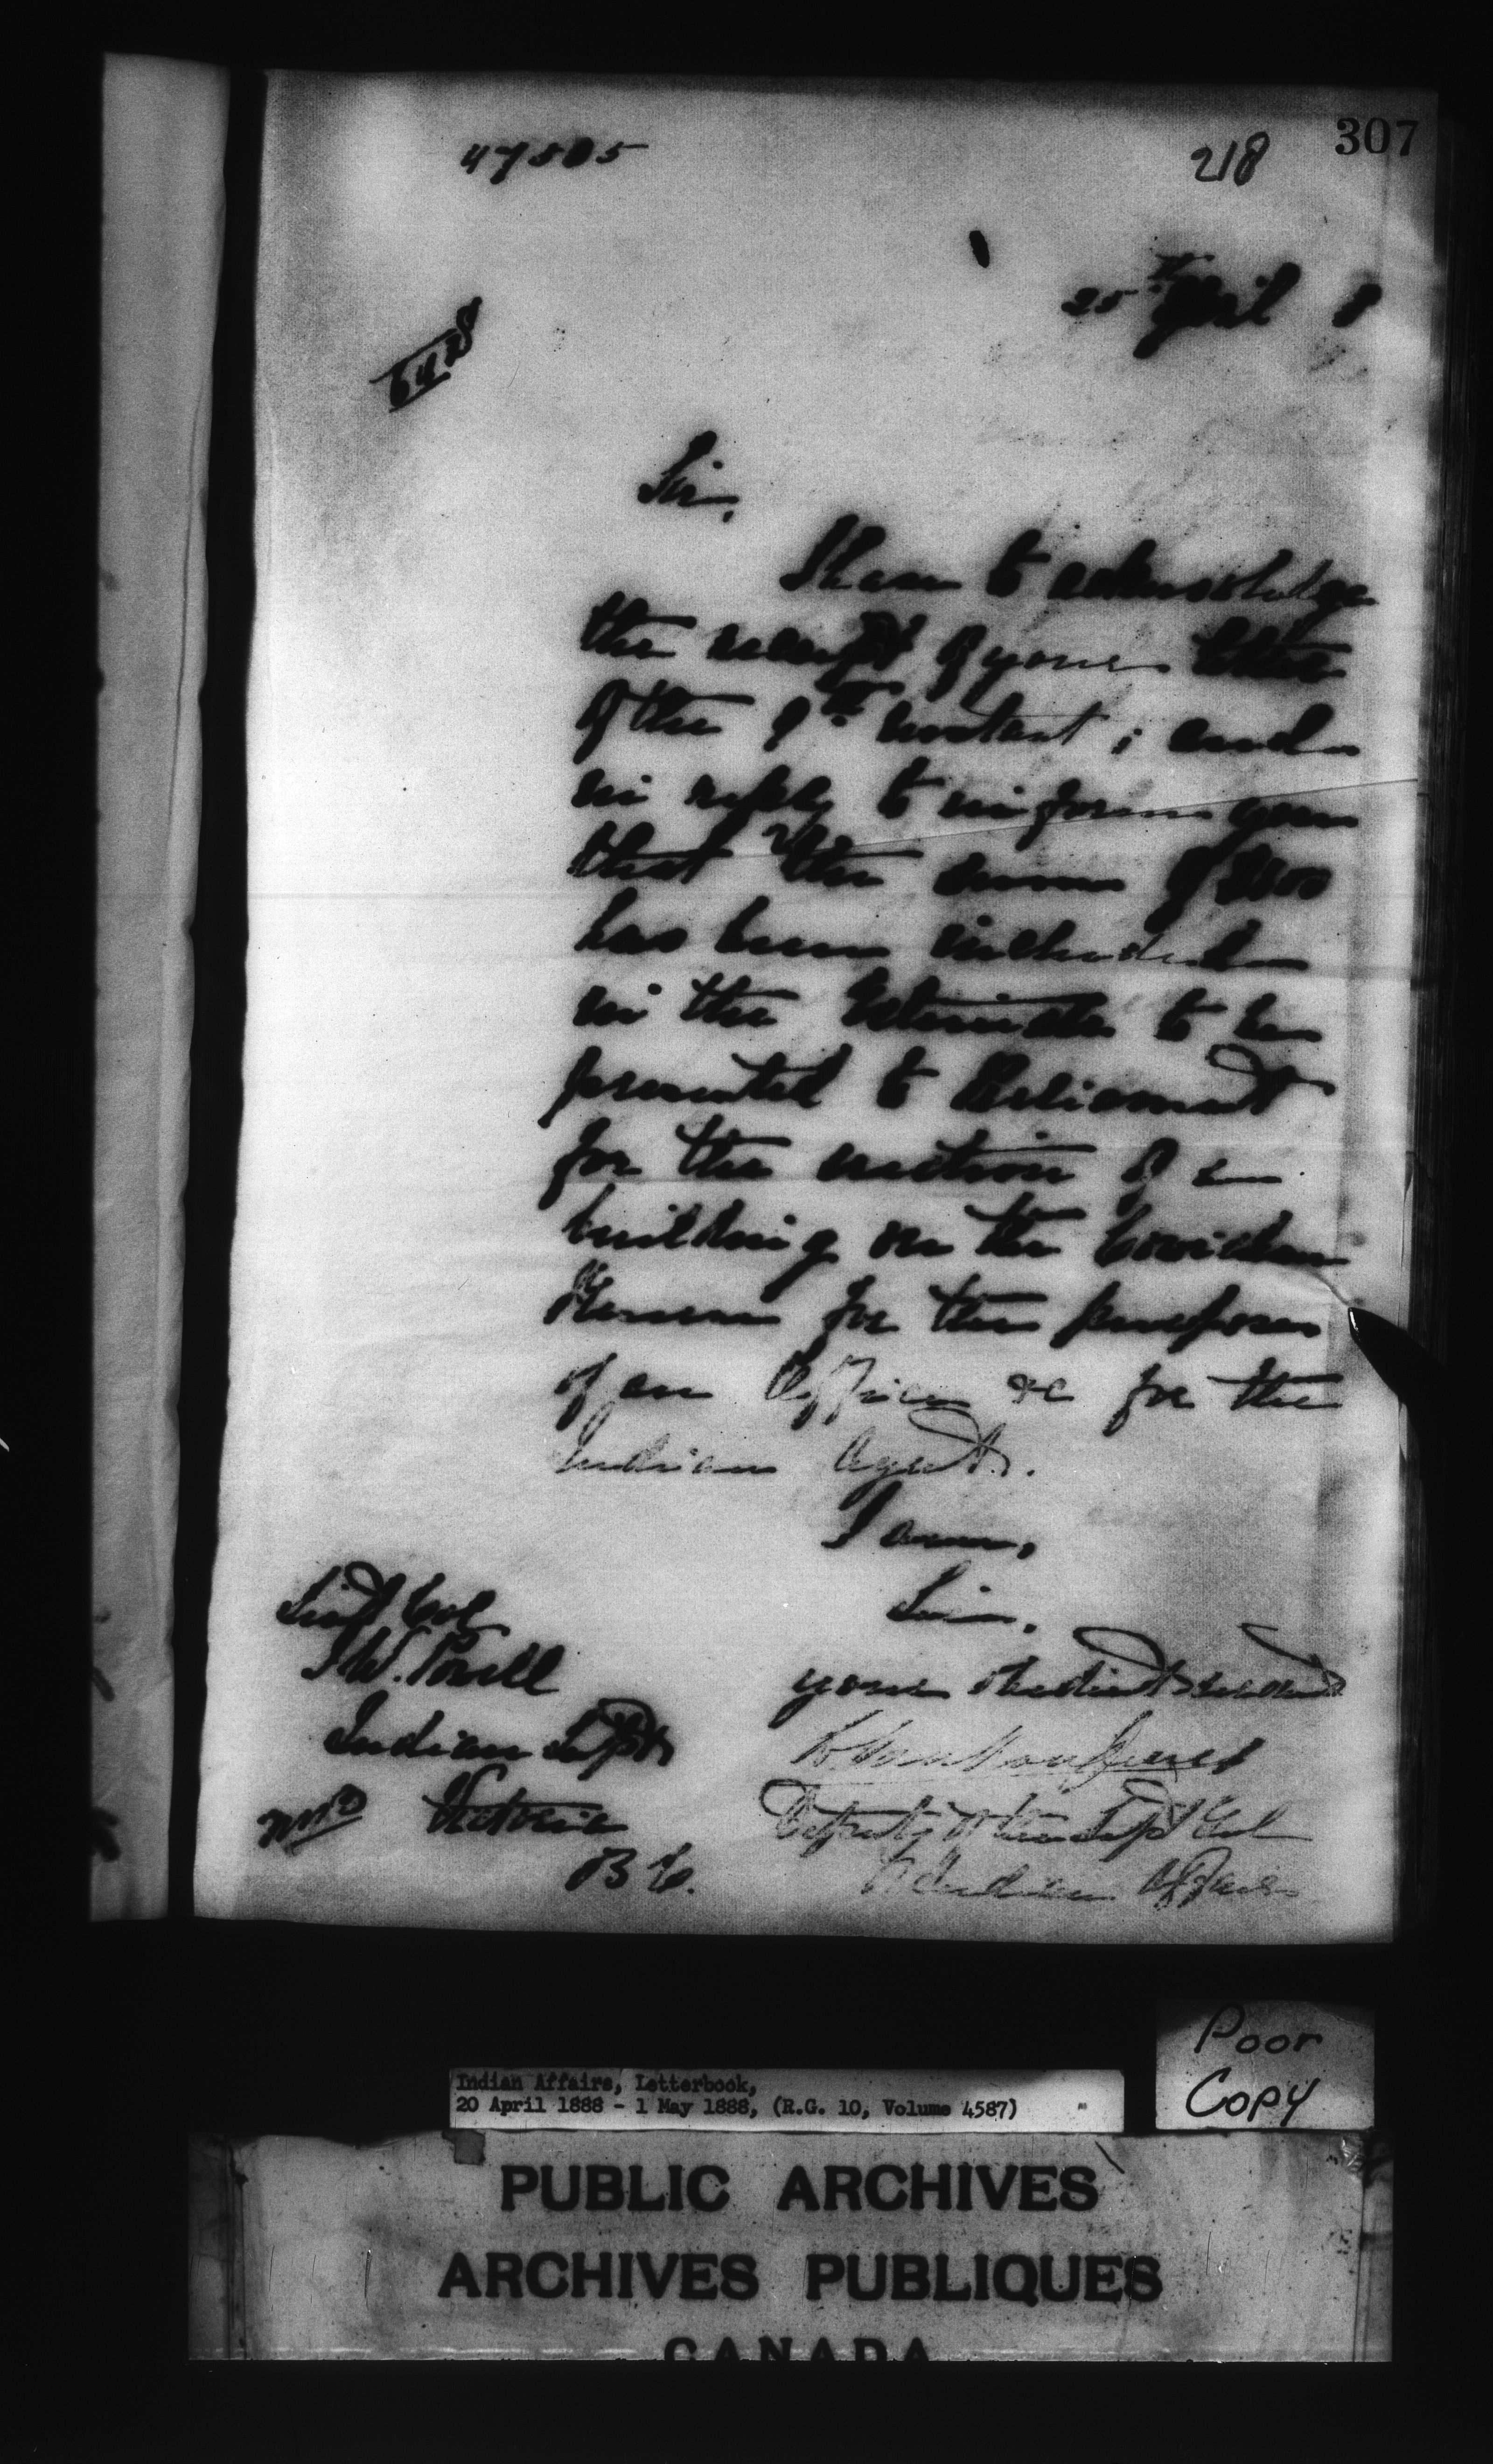 307
218
47505
25th April 8
Sir,
I have to acknowledge
the receipt of your letter
of the 9th instant; and
in reply to inform you
that the sum of
has been included
in the Estimates to be
presented to Parliament
for the erection of a
building on the Cowichan
Reserve for the purposes
of an Office &c for the
Indian Agent.
I am,
Sir,
your obedient servant
L. VanKoughnet
Deputy of the Supt Genl
of Indian Affairs
Lieut Col
I W. Powell
Indian Supt
Victoria
B C.
Poor
Copy
Indian Affairs, Letterbook,
20 April 1888 - 1 May 1888, (R.G. 10, Volume 4587)
PUBLIC ARCHIVES
ARCHIVES PUBLIQUES
CANADA